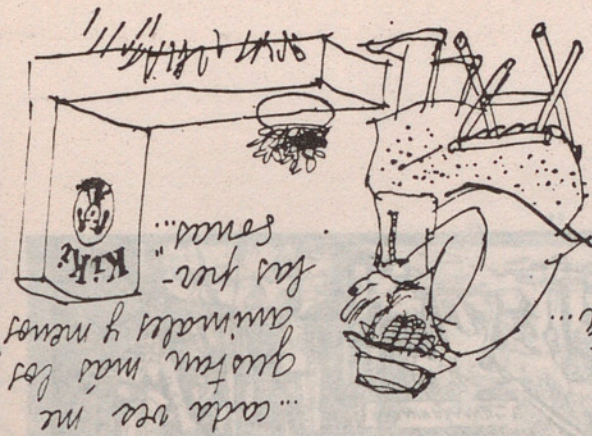 ...cada vez me
gustan más los
animales y menos
las per-
sonas..."
KiKi